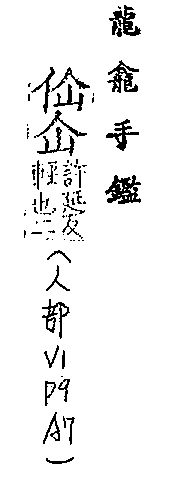 龍龕手鑑
仚仚
許延反
輕也二
(人部VI
P9
A7)